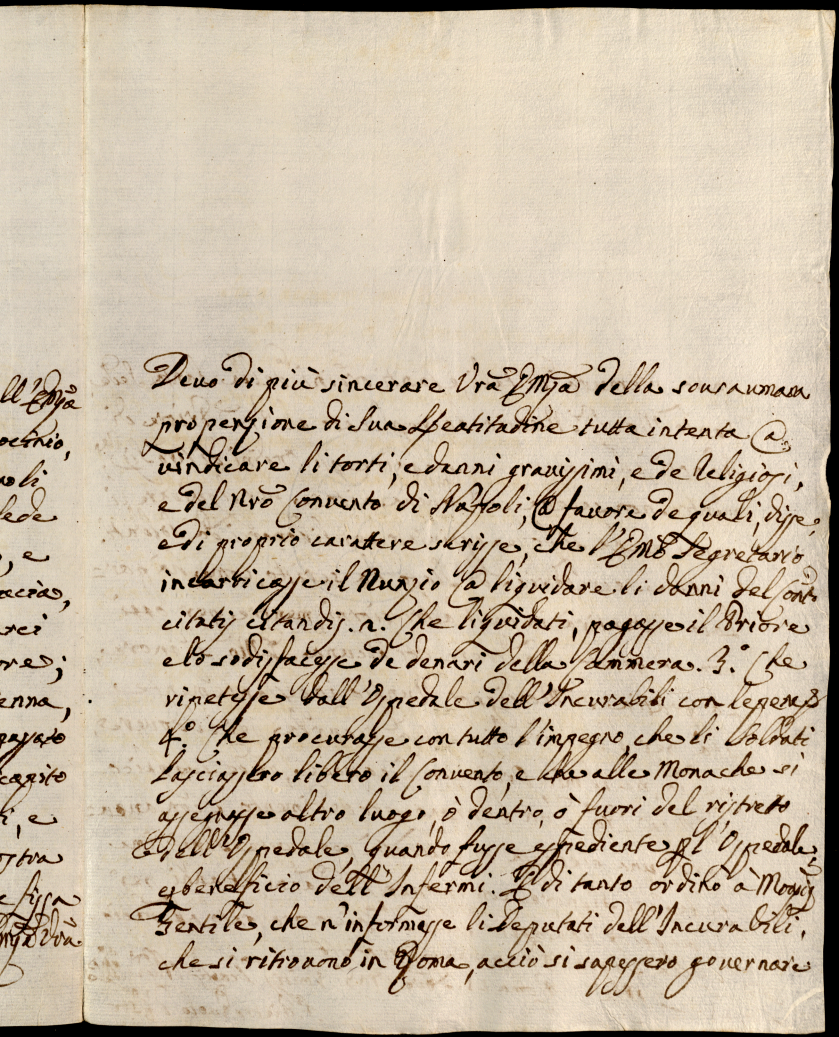 Deuo di più sincerare Vrã Emzã della souraumana
propenzione di Sua Beatitudine tutta intenta a
vindicare li torti, e danni grauissimi, e de Religiosi,
e del Nrõ Conuento di Napoli, a fauore de quali, disse,
e di proprio carattere scrisse, che l'Emõ Segretario
incarricasse il Nunzio a liquidare li danni del Conto
citatis citandis. 2. Che liquidati, pagasse il Priore
e lo sodisfacesse de denari della Cammera. 3.° Che
ripetesse dall'Ospedale dell'Incurabili con le pene
4.° Che procurasse con tutto l'impegno, che li Soldati
lasciassero libero il Conuento, e che alle Monache si
assegnasse altro luogo, ò dentro, ò fuori del ristreto
dell'Ospedale, quando fusse espediente p l'Ospedale,
e beneficio dell'Infermi. E di tanto ordinò à Monsig
Gentile, che n'informasse li Deputati dell'Incurabili,
che si ritrouono in Roma, acciò si sapessero gouernare
ll'Emzã
li
sede
, e
acia,
arci
ore;
enna,
capito
i, e
ostra
e fissa
Vrã